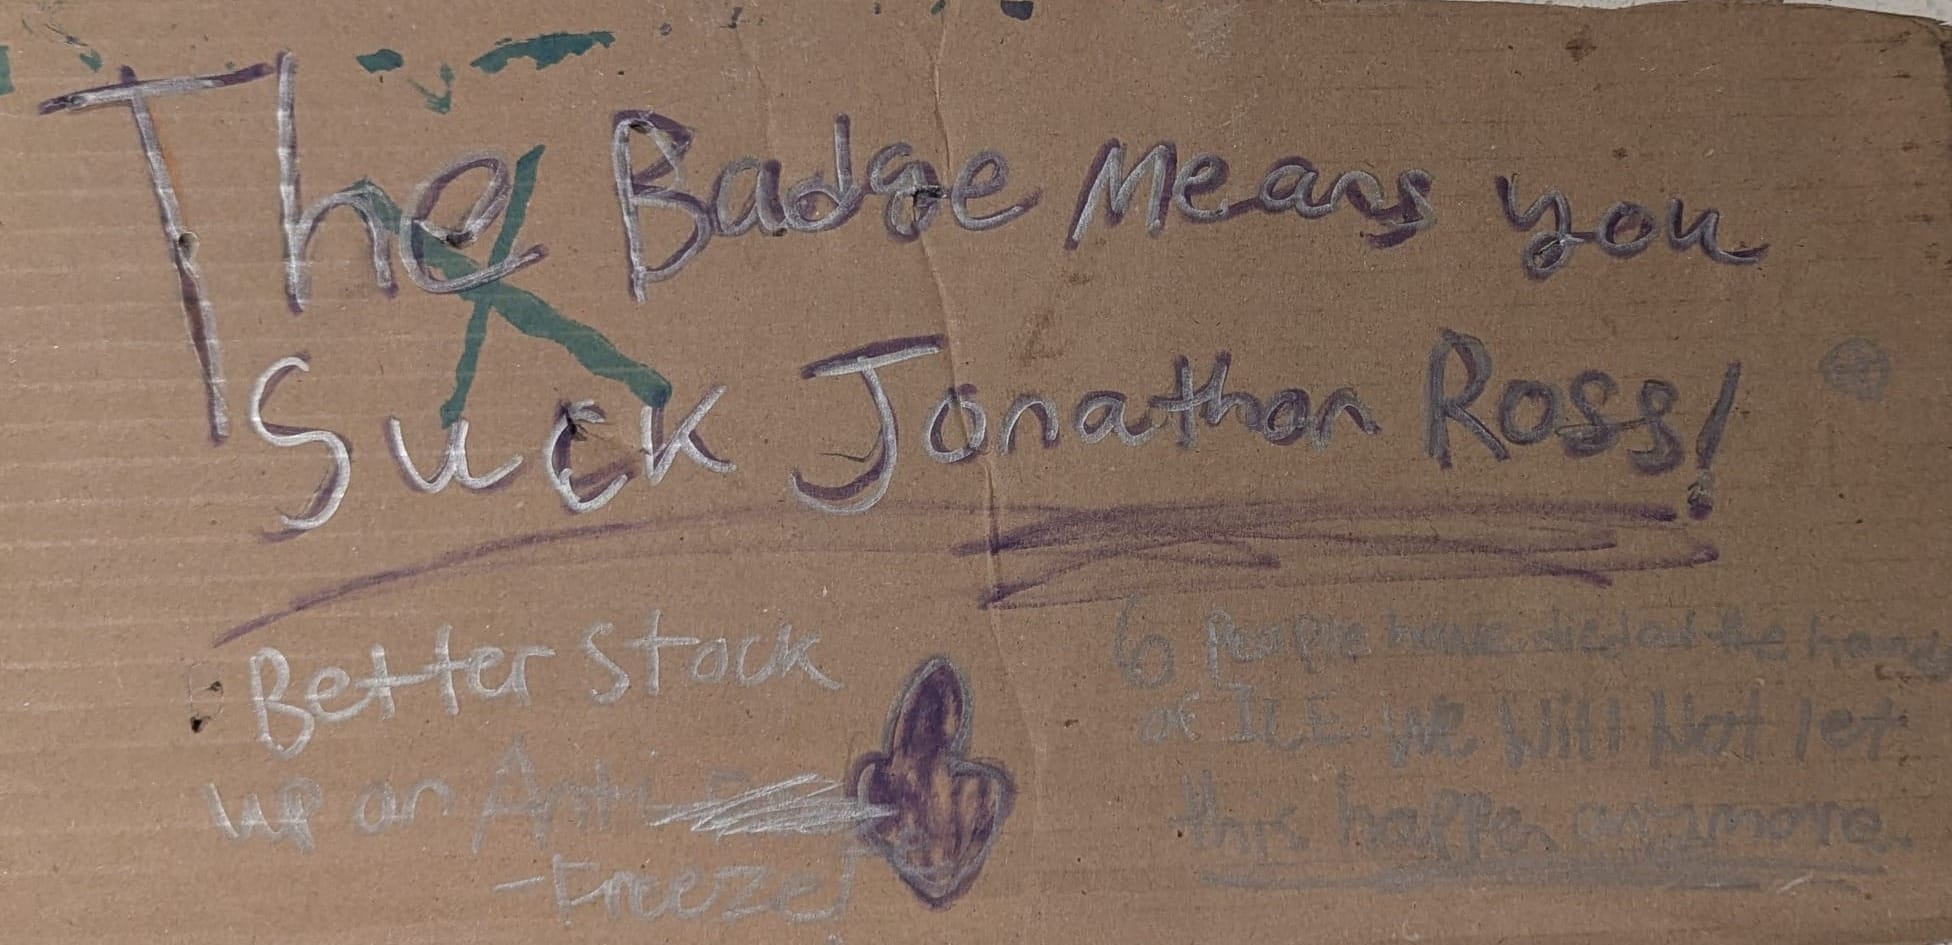 The Badge Means you
Suck Jonathan Ross!
Better Stock
up on Anti
-Freeze!
6 People have died at the hands
of ICE. We Will Not let
this happen anymore.